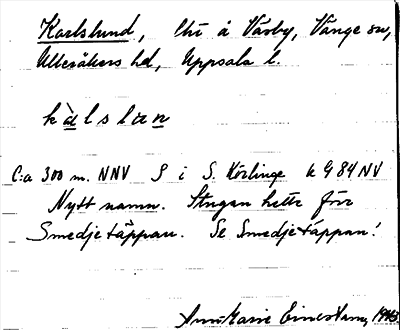 Karlslund, lht å Väsby, Vänge sn,
Ulleråkers hd, Uppsala l.
kàlslan
C:a 300 m. NNV S i S. Körlinge k G 84 NV
Nytt namn. Stugan hette förr
Smedjetäppan. Se Smedjetäppan!
Ann-Marie